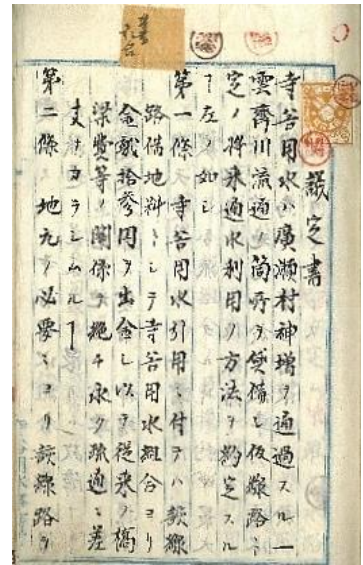 議定書
寺谷用水ハ廣瀬村神増ヲ通過スル一
雲齊川流通ノ箇所ヲ貸借シ仮線路ニ
定ノ将来通水利用ノ方法ヲ約定スル
ヿ左ノ如シ
第一條 寺谷用水引用ニ付テハ該線
路借地料トシテ寺谷用水組合ヨリ
金貳拾参円ヲ出金シ以テ従来ノ橋
梁費等ノ関係ヲ絶チ永ク疏通ニ差
支ナカラシムルヿ
第二條 地元ノ必要ニヨリ該線路ヲ